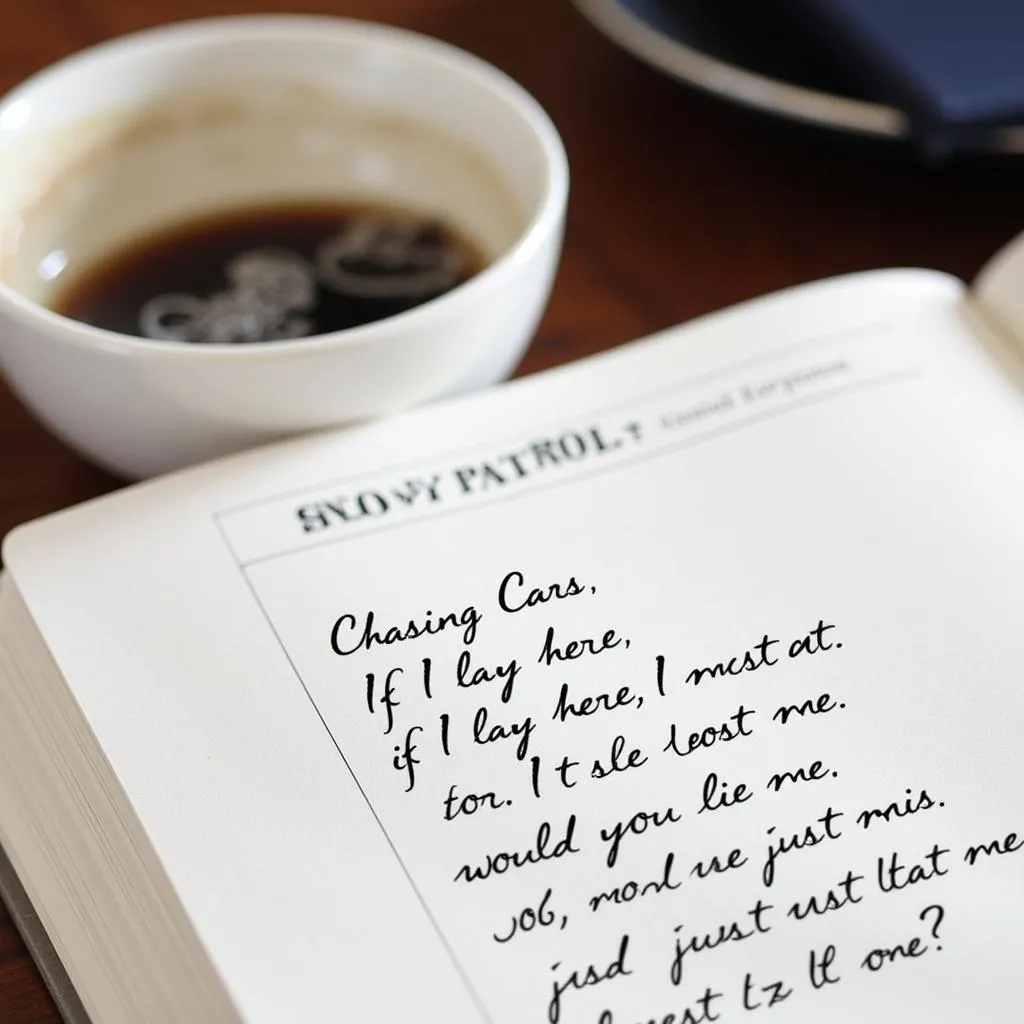 SNOWY PATROL
Chasing Cars,
If I lay here,
if I lay here, I mcst at.
for. I t sle leost me.
would you lie me.
job, mond use just mis.
jusd juust ust ltat me
tz lt one?